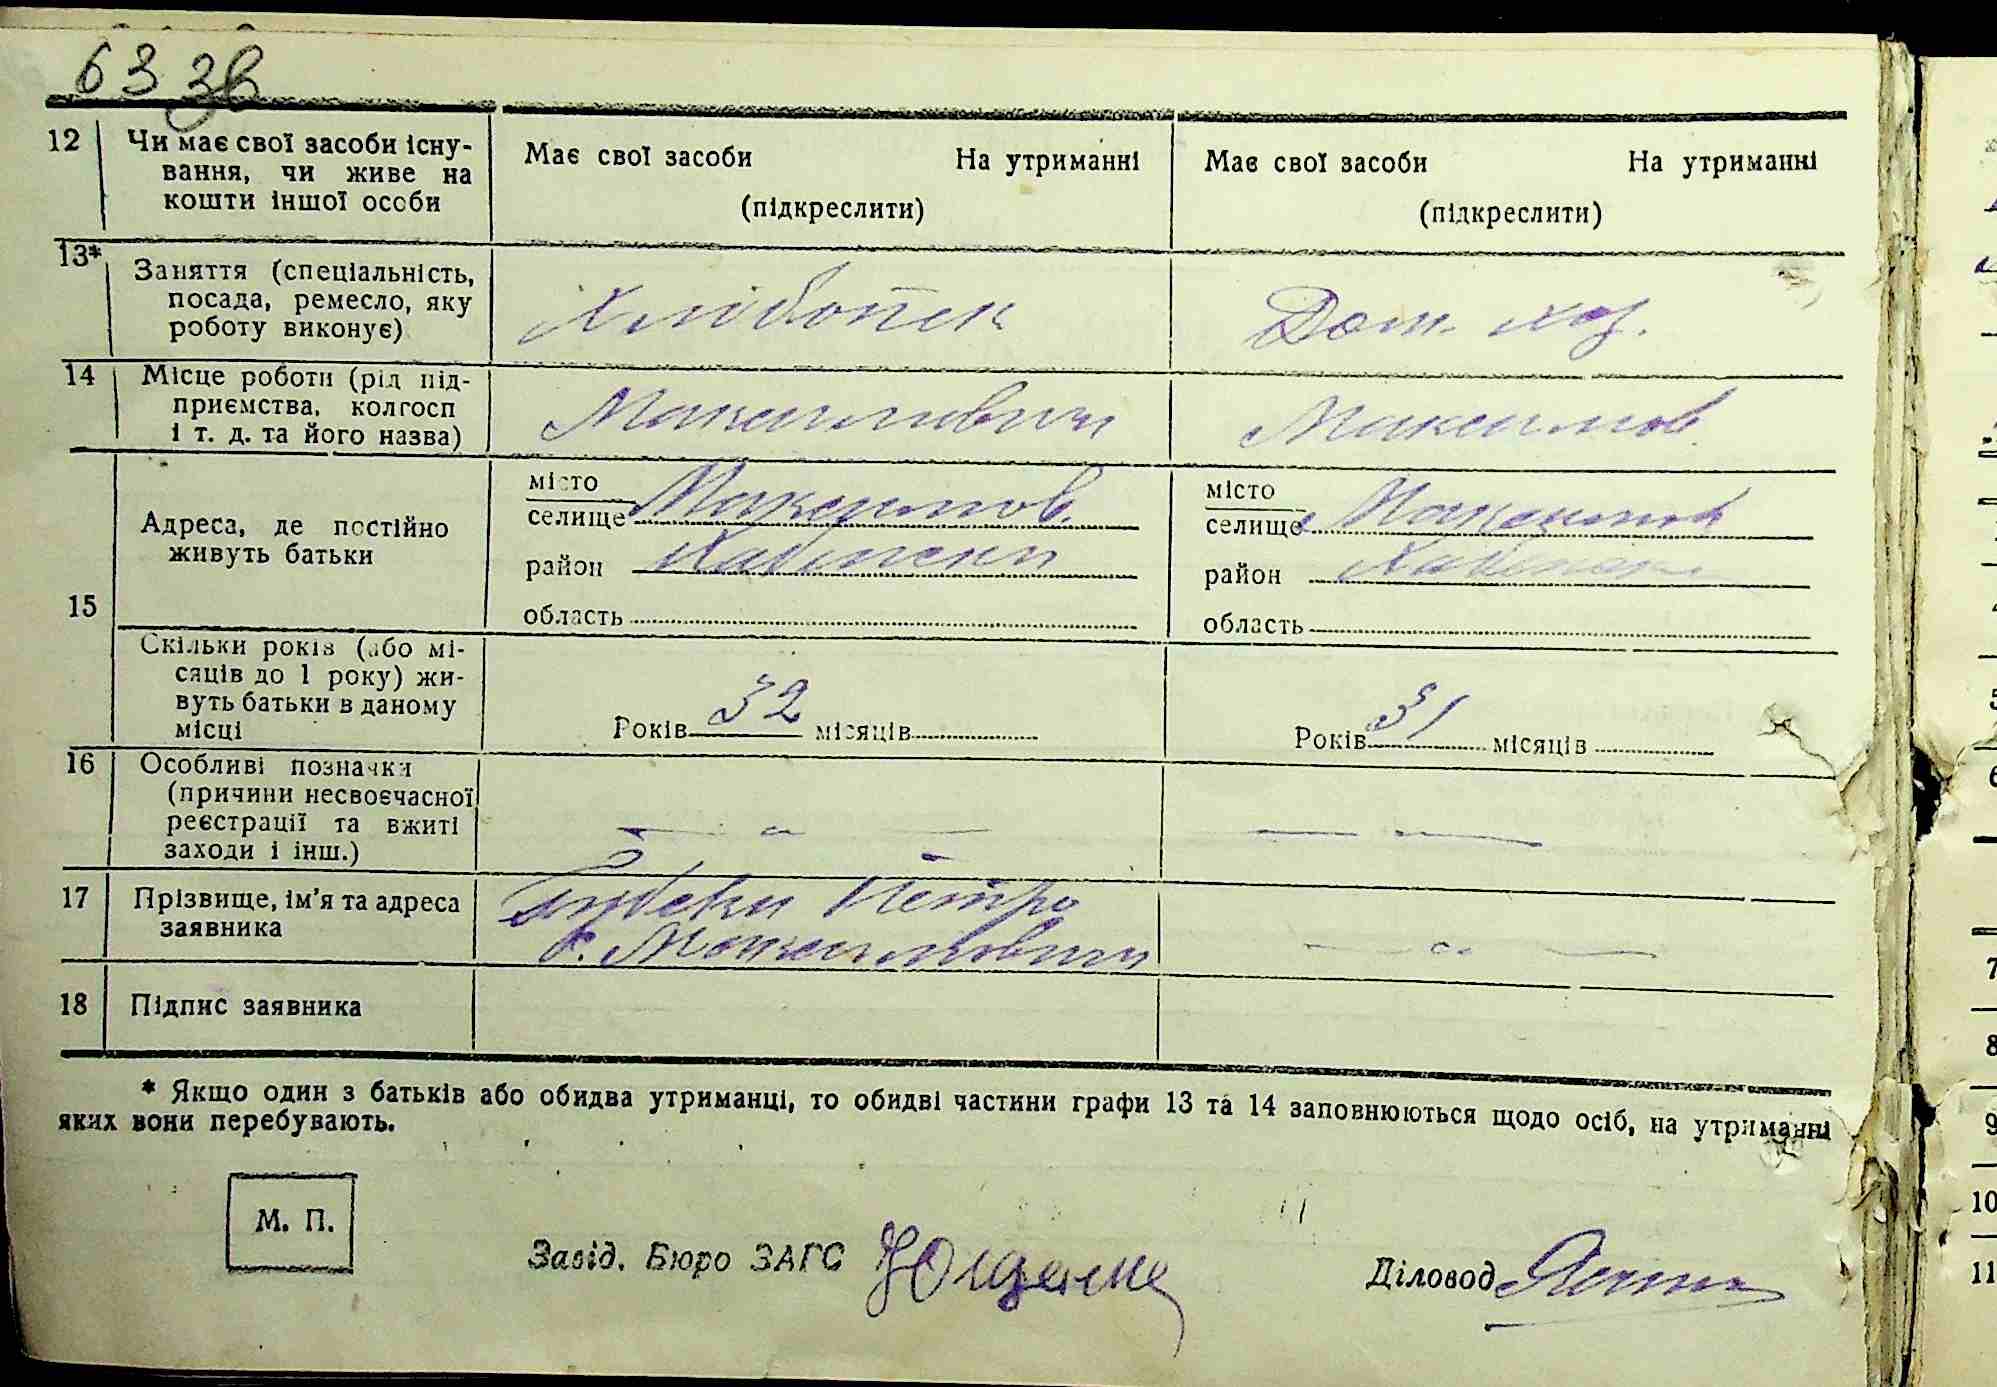 63 зв
12 Чи має свої засоби існу-
вання, чи живе на
кошти іншої особи
Має свої засоби На утриманні
(підкреслити)
Має свої засоби На утриманні
(підкреслити)
13* Заняття (спеціальність,
посада, ремесло, яку
роботу виконує)
Хлібопек
Дом. хоз.
14 Місце роботи (рід під-
приємства, колгосп
і т. д. та його назва)
Максимович
Максимов.
15
Адреса, де постійно
живуть батьки
місто
селище Максимов.
район
область
місто
селище Максимов
район
область
Скільки років (або мі-
сяців до 1 року) жи-
вуть батьки в даному
місці
Років 32 місяців
Років 31 місяців
16 Особливі позначки
(причини несвоєчасної
реєстрації та вжиті
заходи і інш.)
17 Прізвище, ім'я та адреса
заявника
Петро
с. Максимович
18 Підпис заявника
* Якщо один з батьків або обидва утриманці, то обидві частини графи 13 та 14 заповнюються щодо осіб, на утриманні
яких вони перебувають.
М. П.
Завід. Бюро ЗАГС
Діловод
5
6
7
8
9
10
11